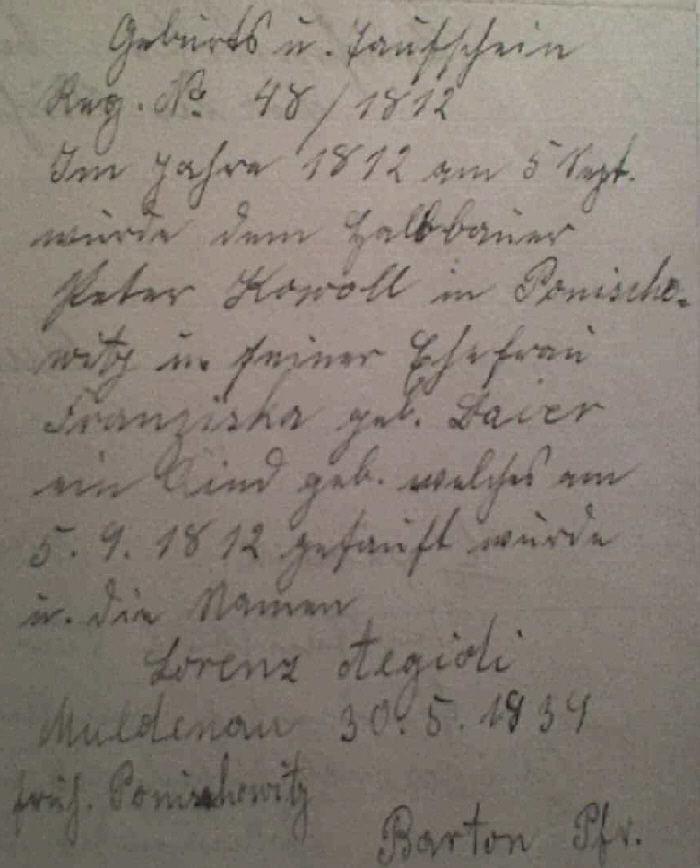 Geburts u. Taufschein
Reg. No 48/1812
Im Jahre 1812 am 5 Sept.
wurde dem Halbbauer
Peter Kowoll in Ponischo-
witz u. seiner Ehefrau
Franziska geb. Baier
ein Kind geb. welches am
5. 9. 1812 getauft wurde
u. die Namen
Lorenz Aegidi
Muldenau 30. 5. 1939
früh. Ponischowitz
Barton Pfr.